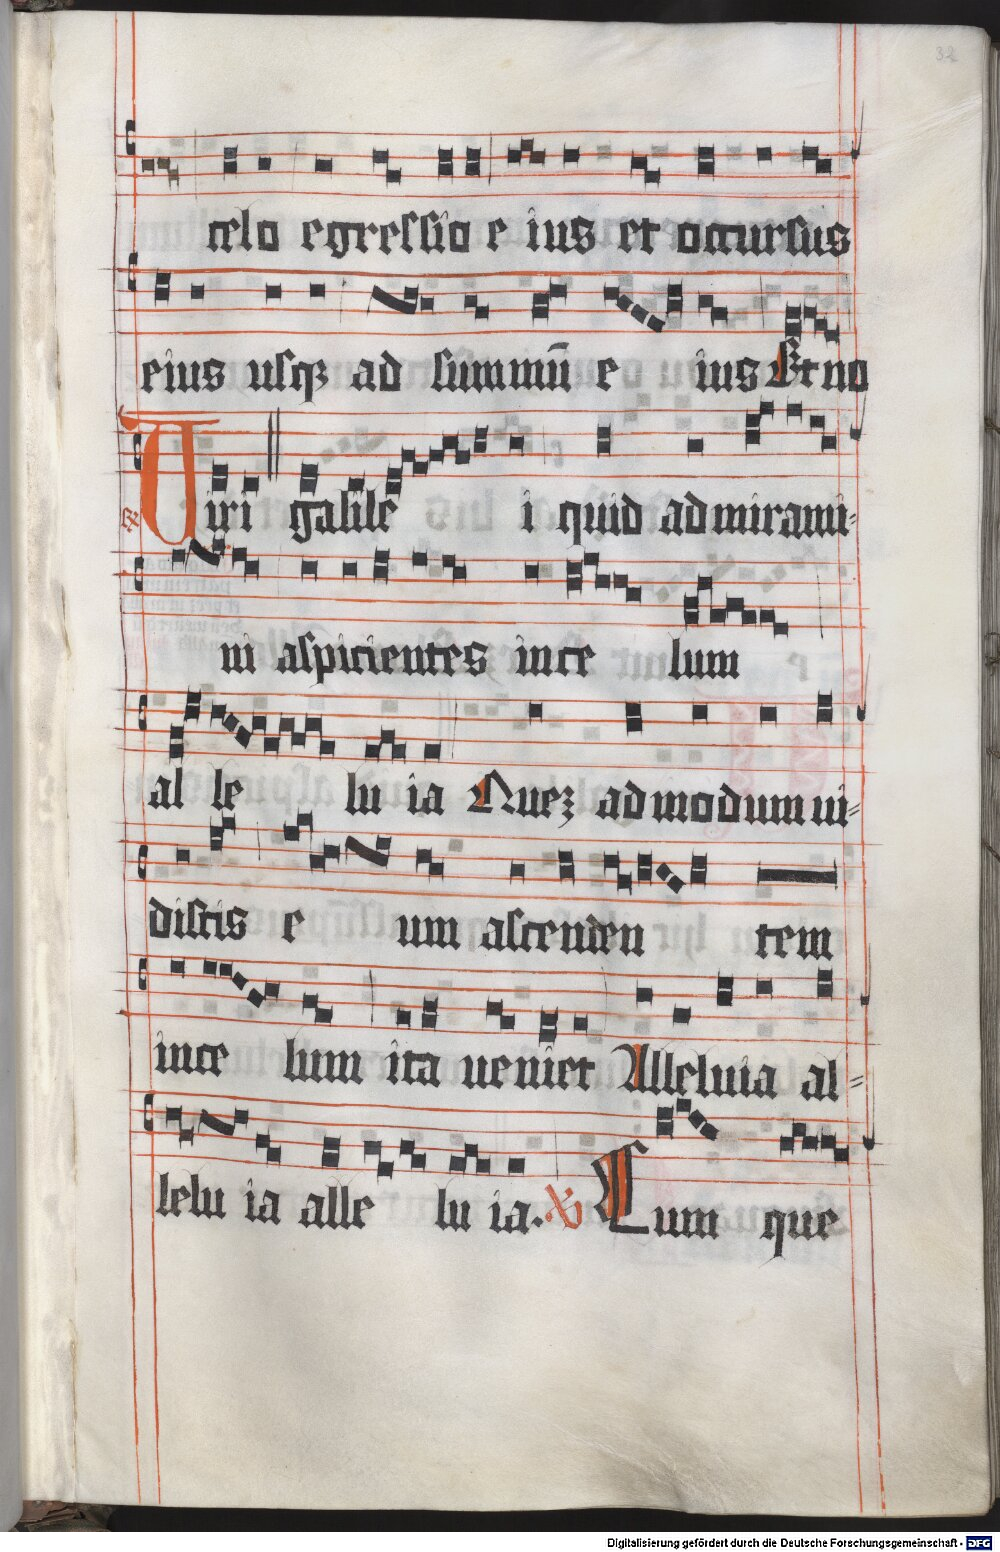 32
celo egressio e ius et occursus
eius usqȝ ad summū e ius Et no
Viri galile i quid admirami⸗
ni aspicientes in ce lum
al le lu ia Quez admodum ui⸗
distis e um ascenden tem
in ce lum ita ueniet Alleluia al⸗
lelu ia alle lu ia. Cum que
Digitalisierung gefördert durch die Deutsche Forschungsgemeinschaft - DFG